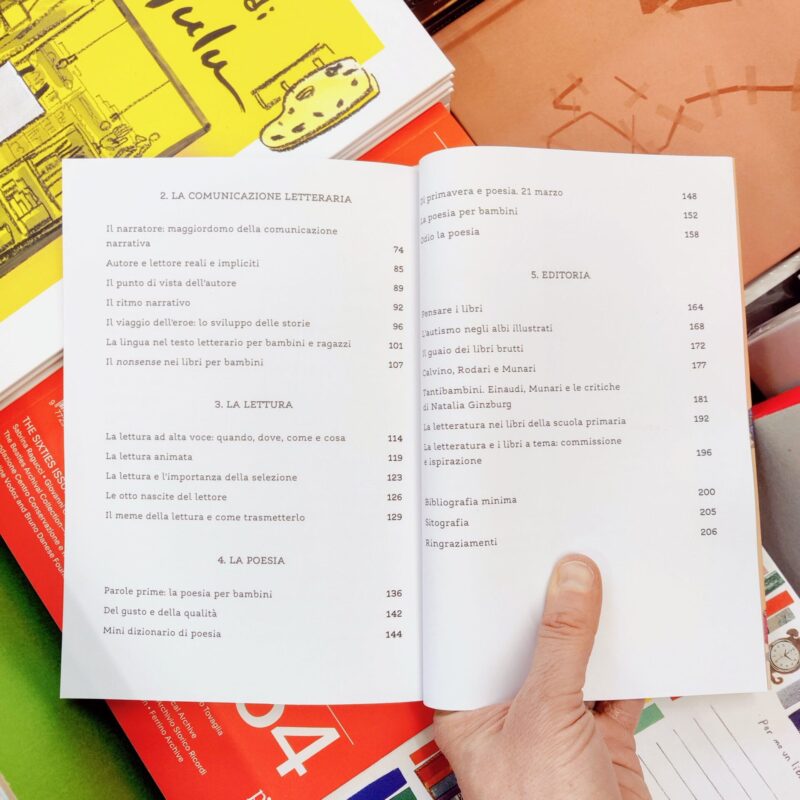 2. LA COMUNICAZIONE LETTERARIA
Il narratore: maggiordomo della comunicazione
narrativa 74
Autore e lettore reali e impliciti 85
Il punto di vista dell'autore 89
Il ritmo narrativo 92
Il viaggio dell'eroe: lo sviluppo delle storie 96
La lingua nel testo letterario per bambini e ragazzi 101
Il nonsense nei libri per bambini 107
3. LA LETTURA
La lettura ad alta voce: quando, dove, come e cosa 114
La lettura animata 119
La lettura e l'importanza della selezione 123
Le otto nascite del lettore 126
Il meme della lettura e come trasmetterlo 129
4. LA POESIA
Parole prime: la poesia per bambini 136
Del gusto e della qualità 142
Mini dizionario di poesia 144
Di primavera e poesia. 21 marzo 148
La poesia per bambini 152
Odio la poesia 158
5. EDITORIA
Pensare i libri 164
L'autismo negli albi illustrati 168
Il guaio dei libri brutti 172
Calvino, Rodari e Munari 177
Tantibambini. Einaudi, Munari e le critiche
di Natalia Ginzburg 181
La letteratura nei libri della scuola primaria 192
La letteratura e i libri a tema: commissione
e ispirazione 196
Bibliografia minima 200
Sitografia 205
Ringraziamenti 206
THE SIXTIES ISSU
Sabrina Ragucci • Giovanni
The Beatles Archival Collection
ndazione Centro Conservazione e
and Bruno Danese Foun
Tovaglia
cal Archive
Archivio Storico Ricordi
• Ferrino Archive
64
Per me un lib